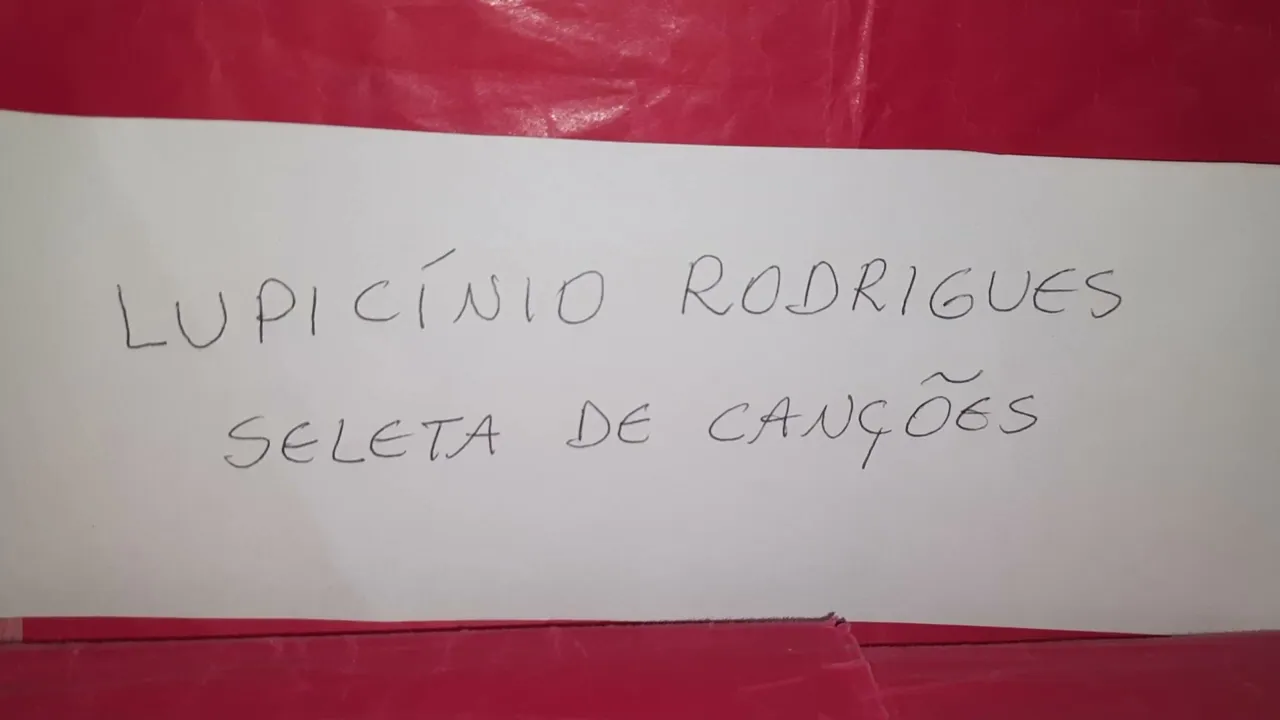 LUPICÍNIO RODRIGUES
SELETA DE CANÇÕES